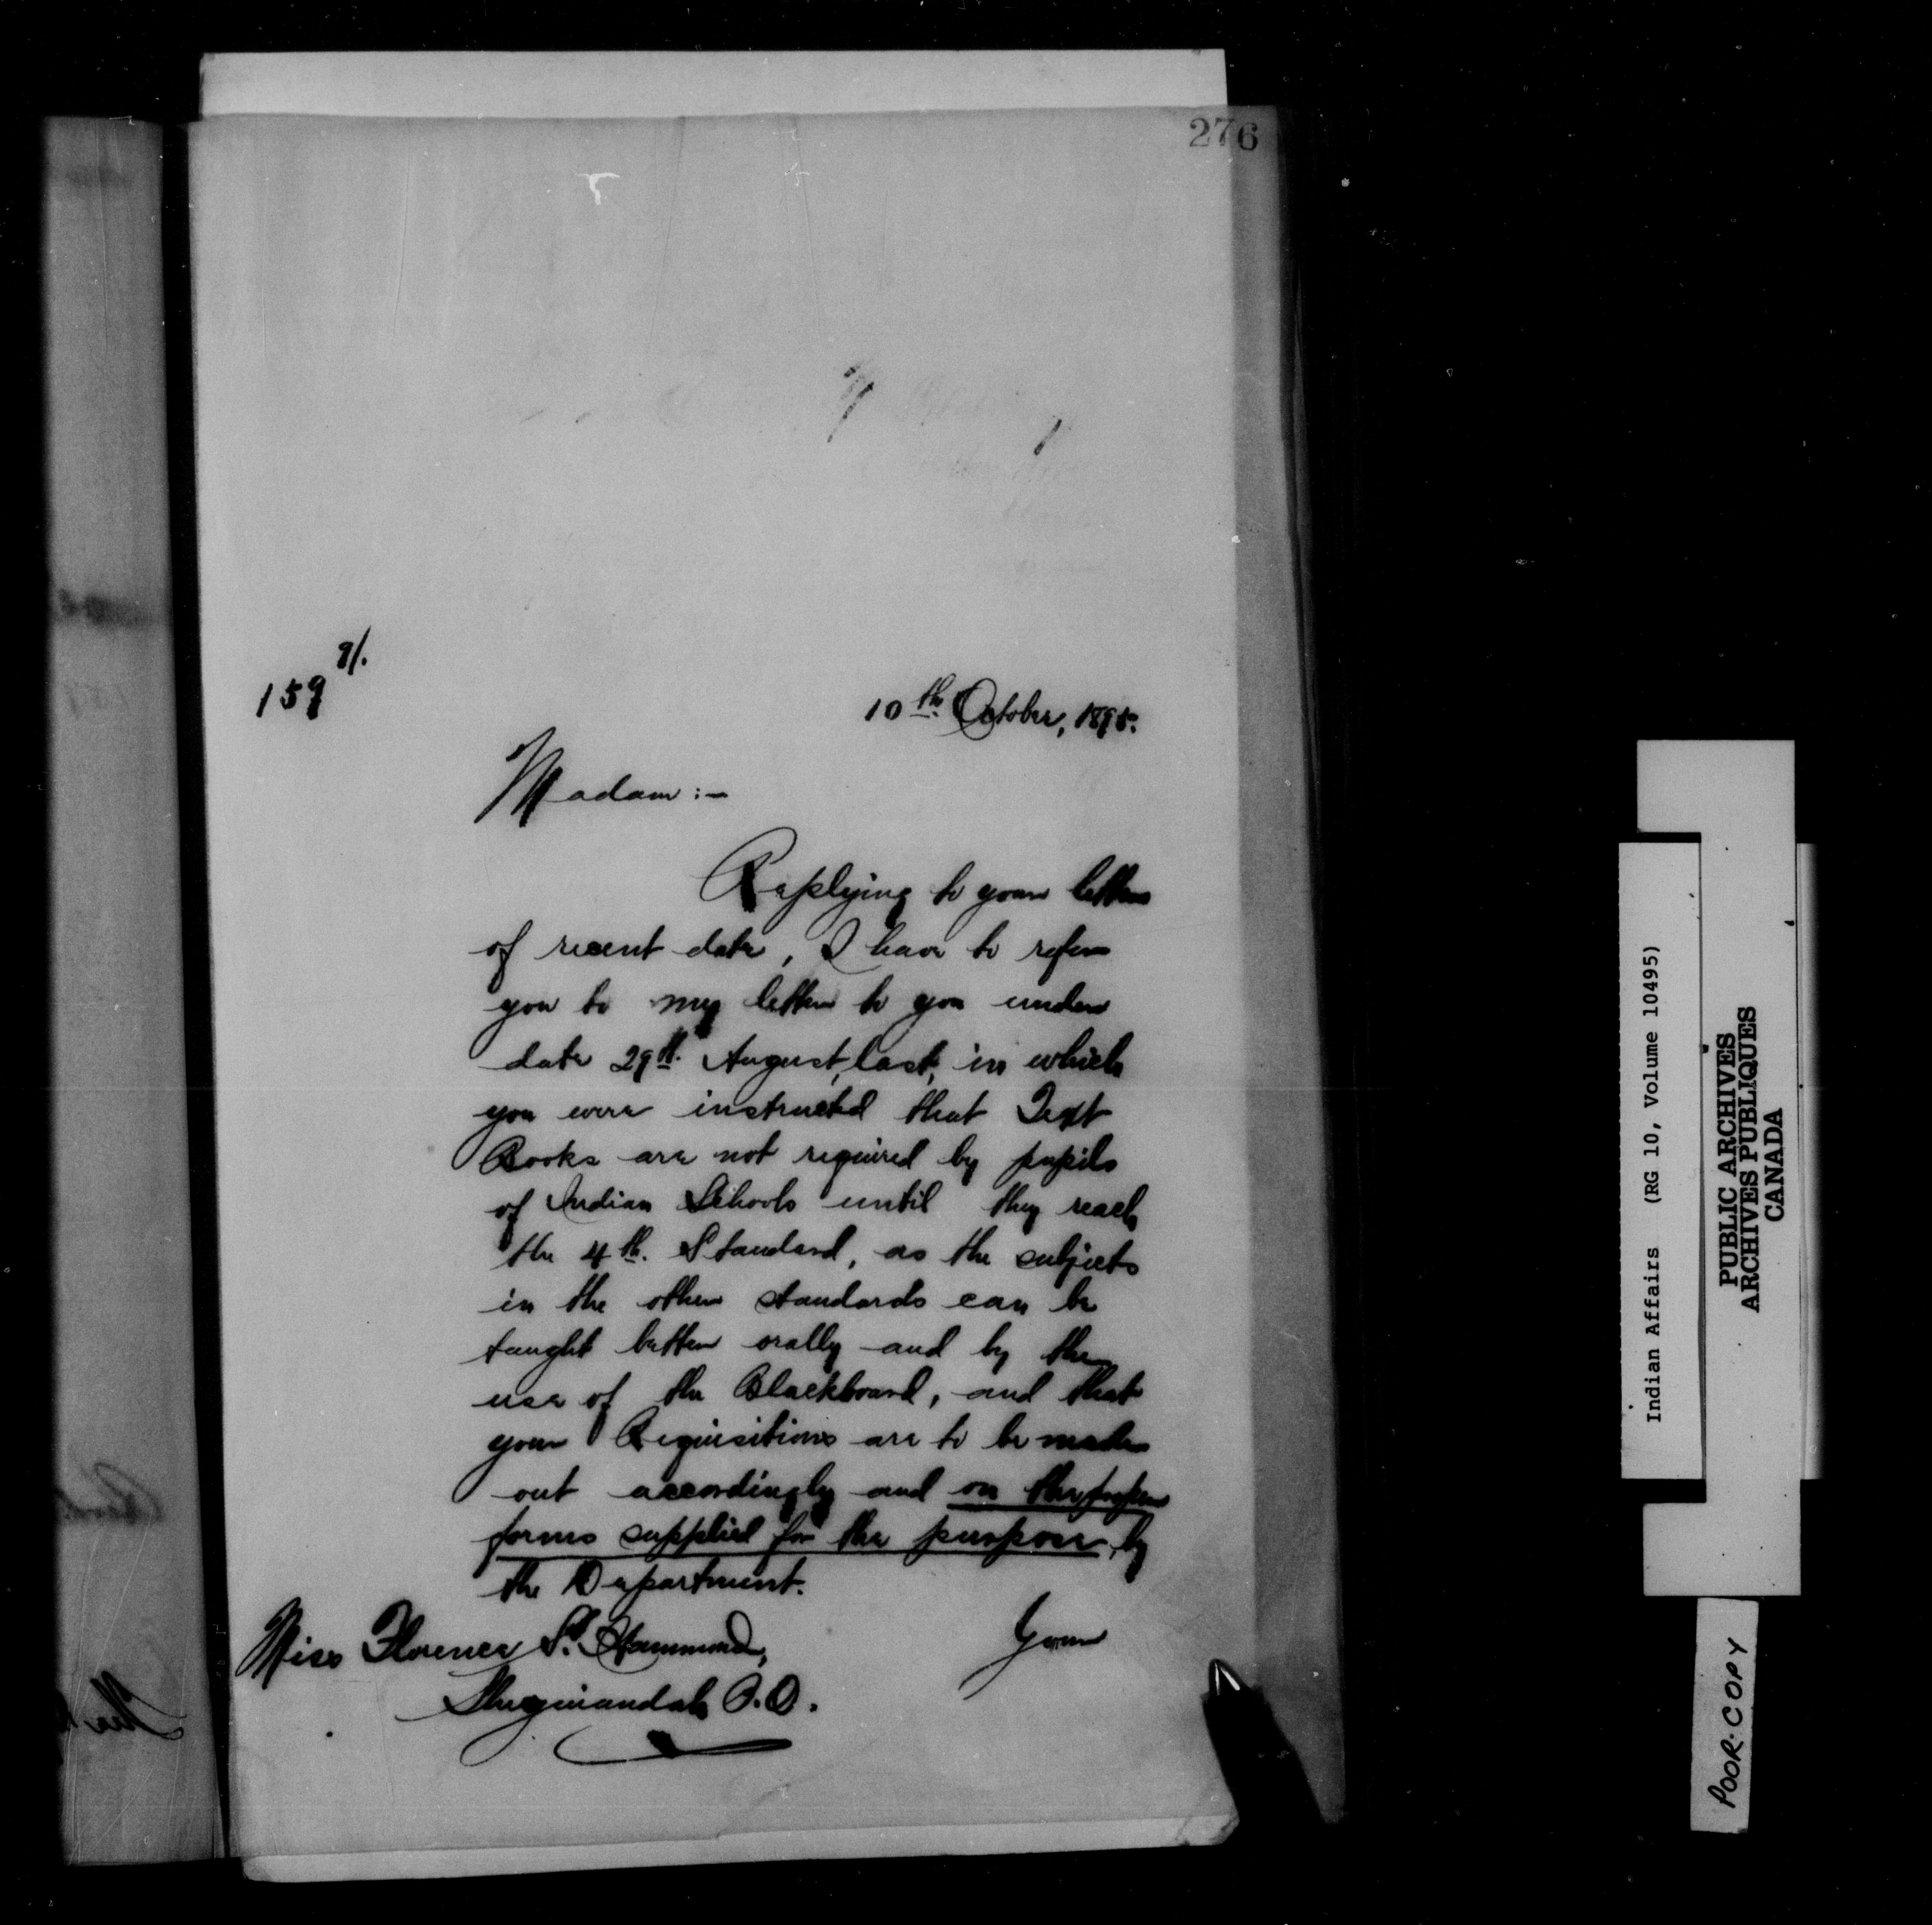 276
159 9/.
10th. October, 1895.
Madam :-
Replying to your letter
of recent date, I have to refer
you to my letter to you under
date 29th. August, last, in which
you were instructed that Text
Books are not required by pupils
of Indian Schools until they reach
the 4th. Standard, as the subjects
in the other standards can be
taught better orally and by the
use of the Blackboard, and that
your Requisitions are to be made
out accordingly and on the proper
forms supplied for the purpose, by
the Department.
Your
Miss Florence S. Hammond,
Sheguiandah P.O.
Indian Affairs (RG 10, Volume 10495)
PUBLIC ARCHIVES
ARCHIVES PUBLIQUES
CANADA
POOR-COPY